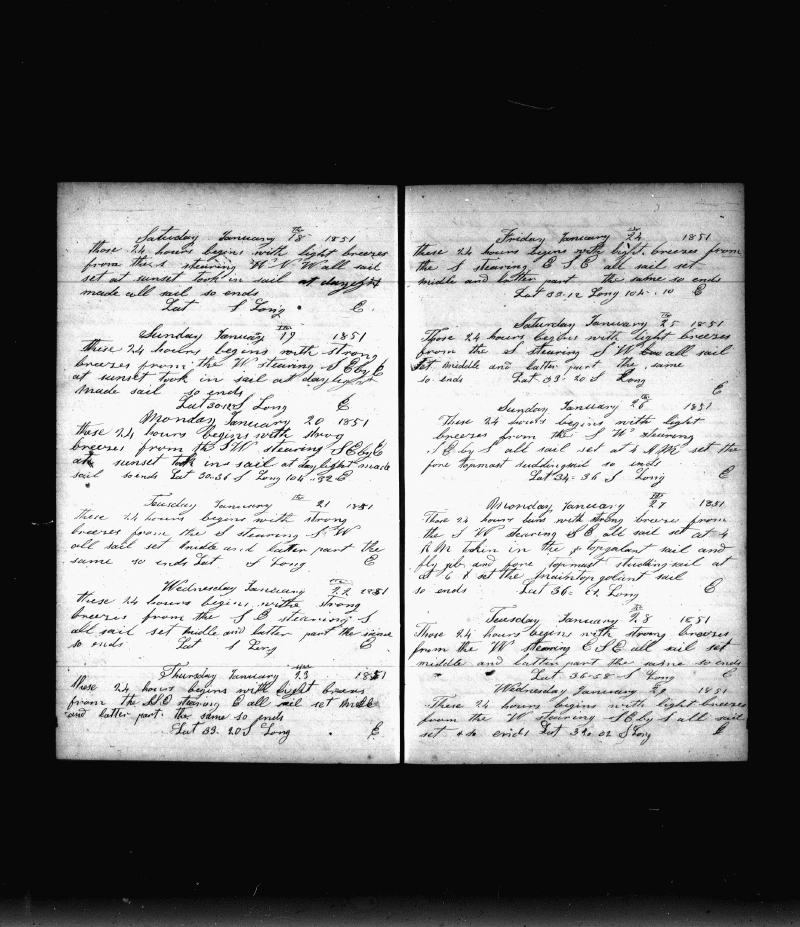 Saturday January 18th 1851
these 24 hours begins with light breezes
from the S stearing W N W all sail
set at sunset took in sail at daylight
made all sail so ends
Lat S Long E
Sunday January 19th 1851
these 24 hours begins with strong
breezes from the W stearing S E by E
at sunset took in sail at daylight
made sail so ends
Lat 30-12 S Long E
Monday January 20 1851
these 24 hours begins with strog
breezes from the S W stearing S E by E
at sunset took in sail at daylight made
sail so ends Lat 30.36 S Long 104-32 E
Tuesday January 21th 1851
These 24 hours begins with strong
breezes from the S stearing S W
all sail set middle and latter part the
same so ends Lat S Long E
Wednesday January 22th 1851
these 24 hours begins withe strong
breezes from the S E stearing S
all sail set midle and latter part the same
so ends Lat S Long E
Thursday January 23th 1851
These 24 hours begins with light breezes
from the S E stearing E all sail set middle
and latter part the same so ends
Lat 33-20 S Long E
Friday January 24th 1851
these 24 hours begins with light breezes from
the S stearing E S E all sail set
midle and latter part the same so ends
Lat 33-12 Long 104-10 E
Saturday January 25th 1851
These 24 hours begins with light breezes
from the S stearing S W all sail
set middle and latter part the same
so ends Lat 33-20 S Long
E
Sunday January 26th 1851
These 24 hours begins with light
breezes from the S W stearing
S E by S all sail set at 4 set the
fore topmast suddingsail so ends
Lat 34-36 S Long E
Monday January 27th 1851
These 24 hours with strong breeze from
the S W stearing S E all sail set at 4
taken in the topgalant sail and
fly jib and fore topmast studingsail at
at 6 set the maintopgalant sail
so ends Lat 36- Long E
Tuesday January 28th 1851
These 24 hours begins with strong breezes
from the W stearing E S E all sail set
middle and latter part the same so ends
Lat 36-58 S Long E
Wednesday January 29 1851
These 24 hours begins with light breezes
from the W stearing S E by S all sail
set so ends Lat S Long E